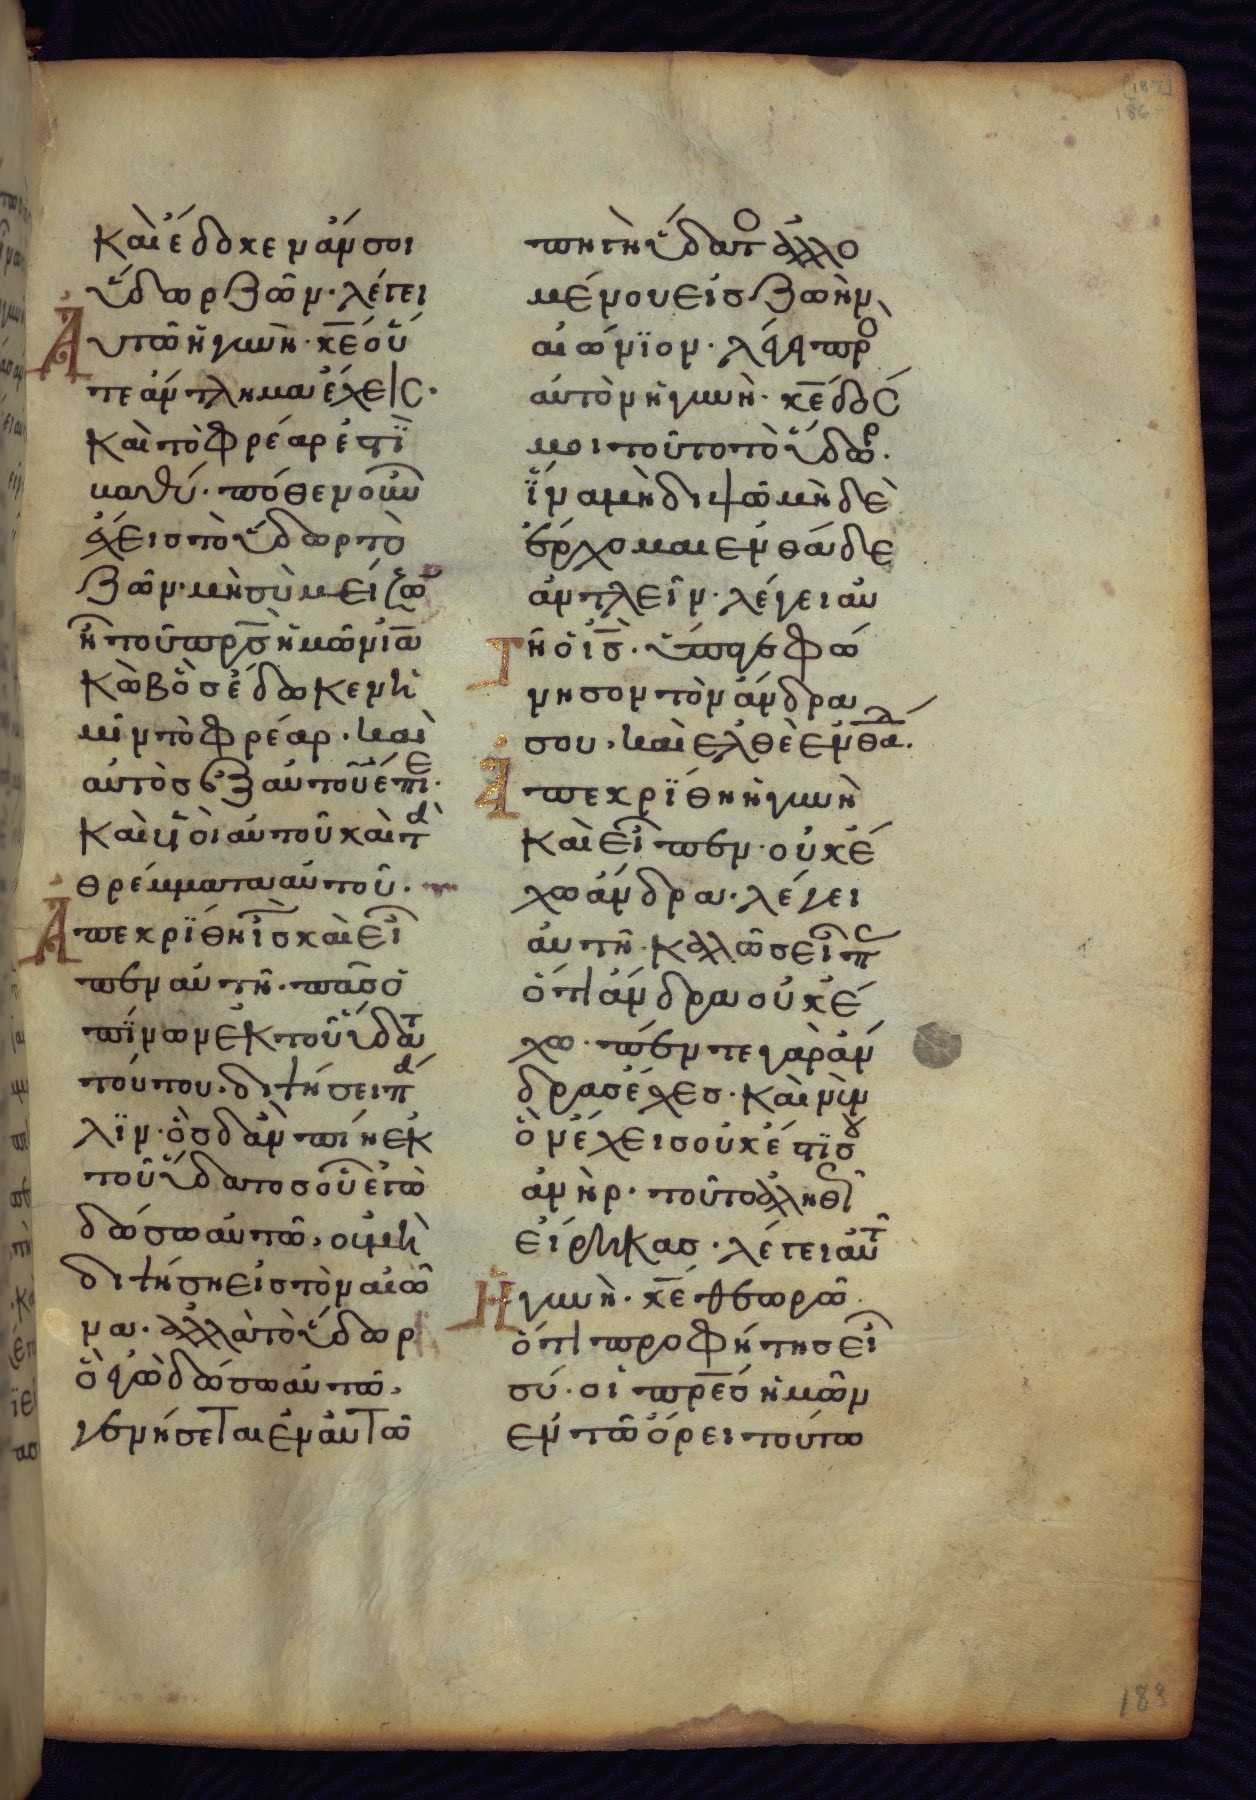 καὶ ἔδοκεν ἄν σοι
ὕδωρ ζῶν· λέγει
Αὐτῶ ἡ γυνὴ· κ̅ε̅ οὔ
τε ἄντλημα ἔχεις·
καὶ τὸ φρέαρ ἐστὶ
βαθύ· πόθεν οὖν
ἔχεις τὸ ὕδωρ τὸ
ζῶν· μὴ σὺ μείζω
ἢ τοῦ π̅ρ̅σ̅ ἡμῶν ἰα
κὼβ ὃς ἔδωκεν ἡ
μῖν τὸ φρέαρ· καὶ
αὐτὸς ἐξ αὐτοῦ ἔπιε·
καὶ υἱοὶ αὐτοῦ καὶ τὰ
θρέμματα αὐτοῦ·
Ἀπεκρίθη ι̅σ̅ καὶ εἶ
πεν αὐτῆ· πᾶς ὁ
πίνων ἐκ τοῦ ὕδατ
τούτου· διψήσει πά
λιν· ὃς δ ἂν πίη ἐκ
τοῦ ὕδατος οὗ ἐγὼ
δώσω αὐτῶ· οὐ μὴ
διψήση εἰς τὸν αἰῶ
να· ἀλλὰ τὸ ὕδωρ
ὃ ἐγὼ δώσω αὐτῶ·
γενήσεται ἐν αὐτῶ
πηγὴ ὕδατο ἁλλο
μένου εἰς ζωὴν
αἰώνιον· λέγει πρὸ
αὐτὸν ἡ γυνὴ· κ̅ε̅ δός
μοι τοῦτο τὸ ὕδωρ·
ἵνα μὴ διψῶ μὴδὲ
ἔρχομαι ἐνθάδε
ἀντλεῖν· λέγει αὐ
Τῆ ὁ ι̅σ̅· ὕπαγε φώ
νησον τὸν ἄνδρα
σου· καὶ ἐλθὲ ἐνθάδ·
Ἀπεκρίθη ἡ γυνὴ
καὶ εἶπεν· οὐκ ἔ
χω ἄνδρα· λέγει
αὐτῆ· καλῶς εἶπς
ὅτι ἄνδρα οὐκ ἔ
χω· πέντε γὰρ ἄν
δρας ἔχες· καὶ νῦν
ὃν ἔχεις οὐκ ἔστι σου
ἀνήρ· τοῦτο ἀληθὲς
εἴρηκας· λέγει αὐτῆ
Ἡ γυνὴ· κ̅ε̅ θεωρῶ
ὅτι προφήτης εἶ
σύ· οἱ π̅ρ̅ε̅ς̅ ἡμῶν
ἐν τῶ ὄρει τούτω
187
186
183